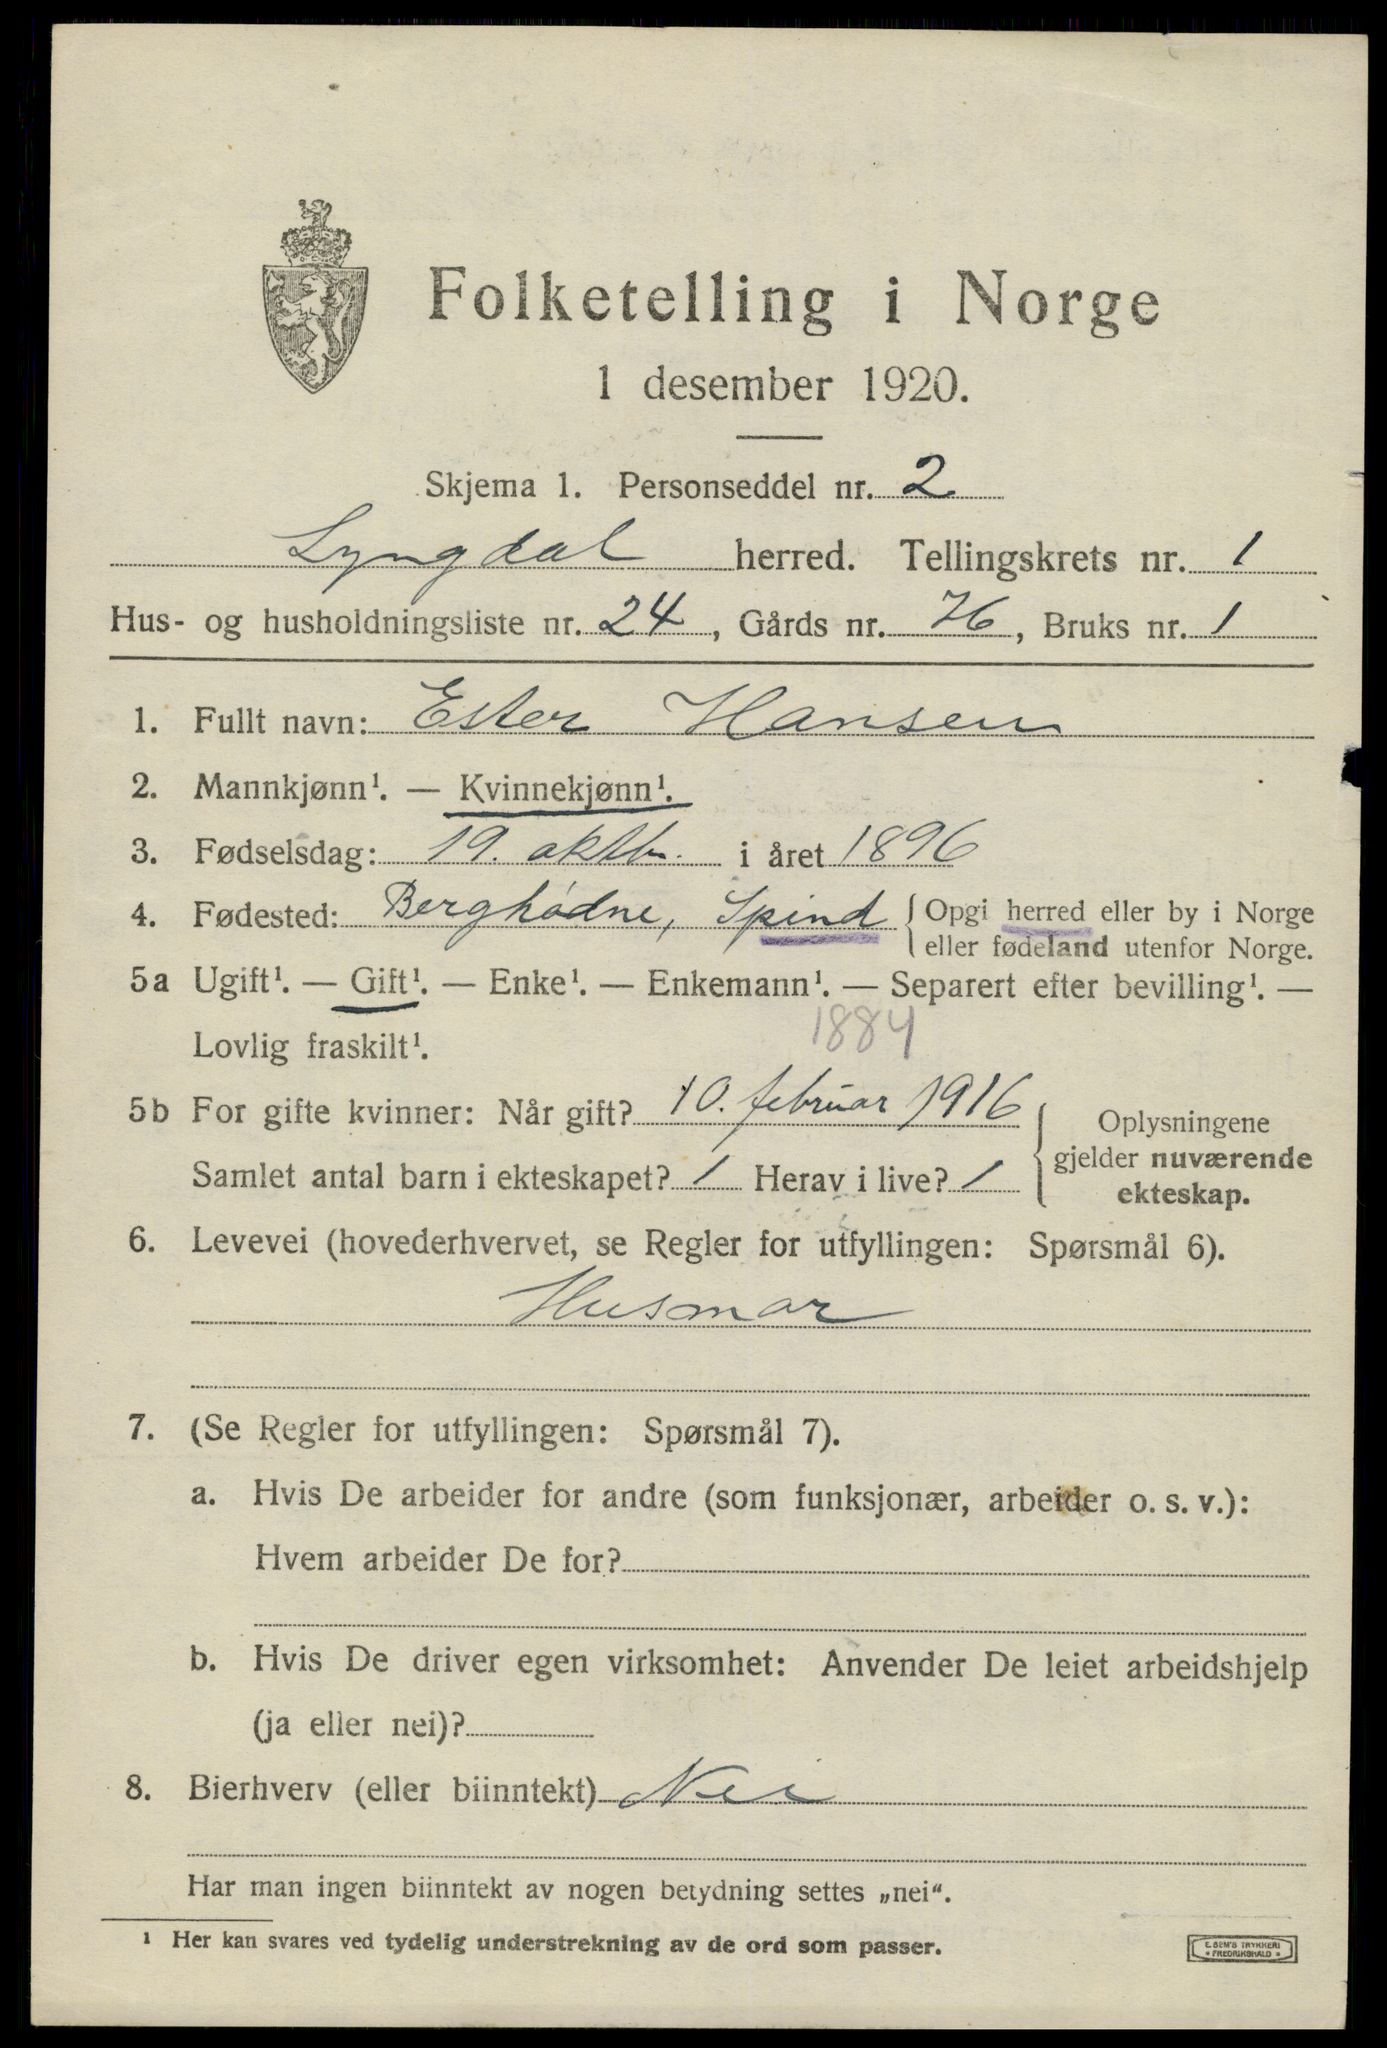 Folketelling i Norge
1 desember 1920.
Skjema 1. Personseddel nr. 2
Lyngdal herred. Tellingskrets nr. 1
Hus- og husholdningsliste nr. 24, Gårds nr. 76, Bruks nr. 1
1. Fullt navn: Ester Hansen
2. Mannkjønn¹. — Kvinnekjønn¹.
3. Fødselsdag: 19. oktb. i året 1896
4. Fødested: Berghødne, Spind { Opgi herred eller by i Norge
eller fødeland utenfor Norge.
5a Ugift¹. — Gift¹. — Enke¹. — Enkemann¹. — Separert efter bevilling¹. —
Lovlig fraskilt¹. 1884
5b For gifte kvinner: Når gift? 10. februar 1916 { Oplysningene
gjelder nuværende
ekteskap.
Samlet antal barn i ekteskapet? 1 Herav i live? 1
6. Levevei (hovederhvervet, se Regler for utfyllingen: Spørsmål 6).
Husmor
7. (Se Regler for utfyllingen: Spørsmål 7).
a. Hvis De arbeider for andre (som funksjonær, arbeider o. s. v.):
Hvem arbeider De for?
b. Hvis De driver egen virksomhet: Anvender De leiet arbeidshjelp
(ja eller nei)?
8. Bierhverv (eller biinntekt) Nei
Har man ingen biinntekt av nogen betydning settes „nei“.
¹ Her kan svares ved tydelig understrekning av de ord som passer.
E. SEM'S TRYKKERI
• FREDRIKSHALD •